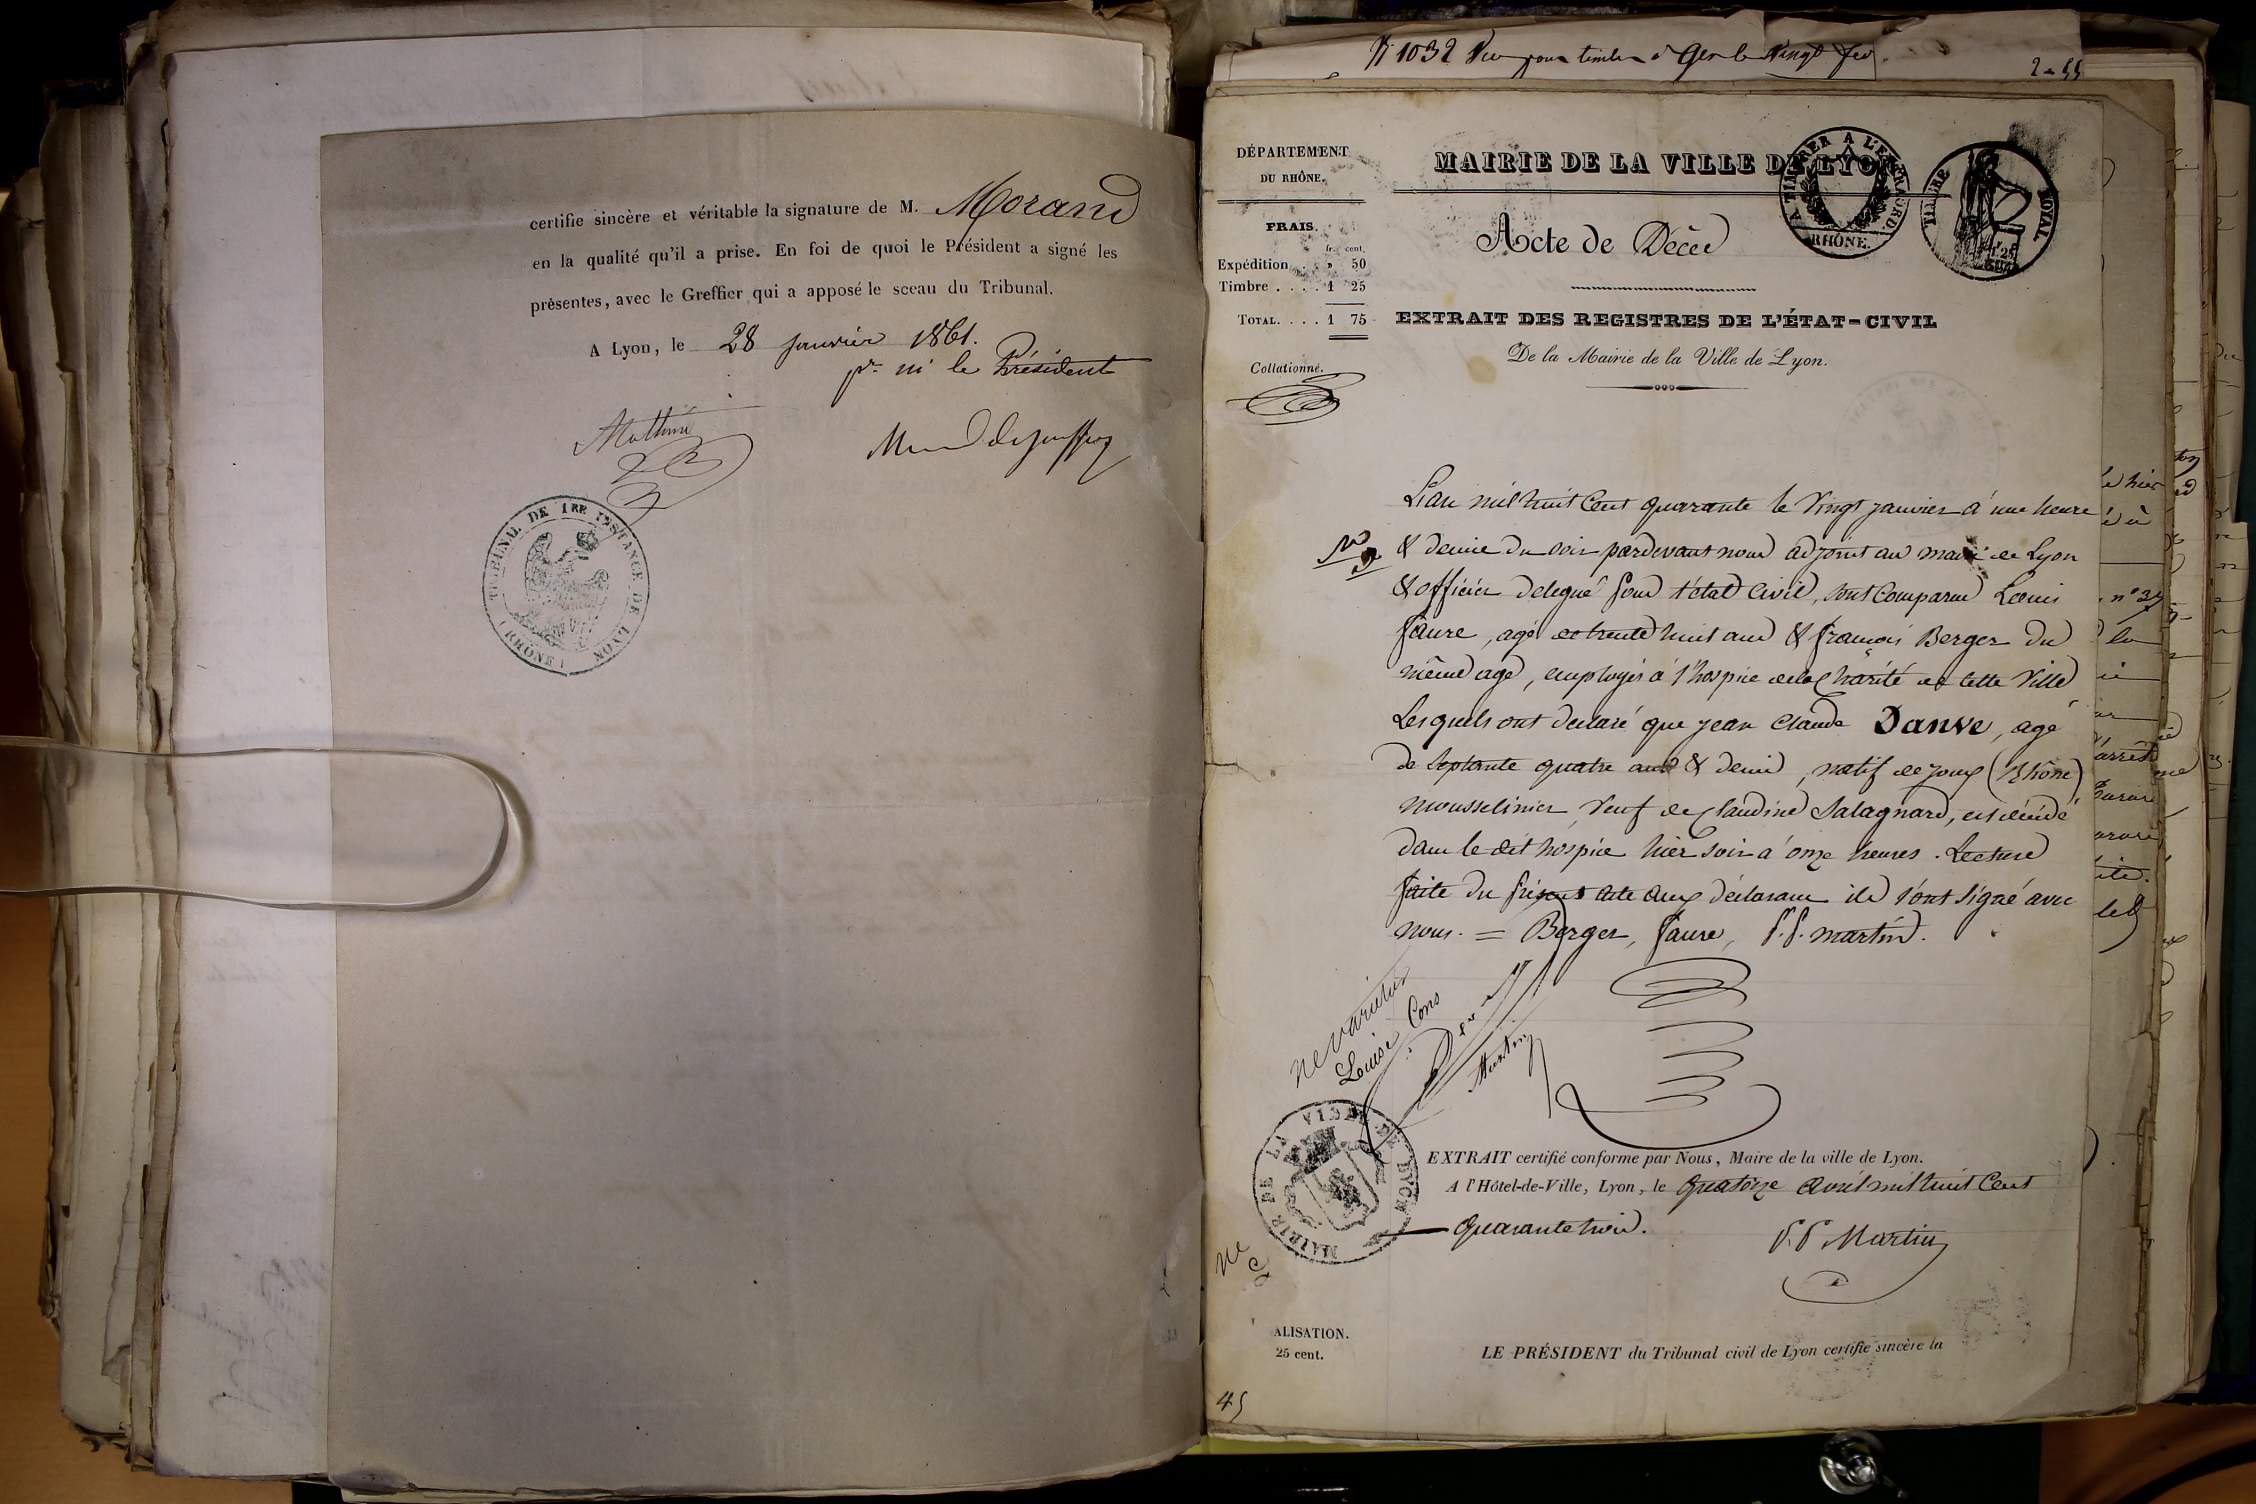 certifie sincère et véritable la signature de M. Morand
en la qualité qu'il a prise. En foi de quoi le Président a signé les
présentes, avec le Greffier qui a apposé le sceau du Tribunal.
A Lyon, le 28 janvier 1861.
le Président
TRIBUNAL DE 1RE INSTANCE DE LYON
(RHÔNE)
N 1032 Vu pour timbre
DÉPARTEMENT
DU RHÔNE.
FRAIS.
fr. cent.
Expédition . . » 50
Timbre . . . . 1 25
TOTAL. . . . 1 75
Collationné.
MAIRIE DE LA VILLE DE LYON
Acte de Décès
A TIMBRER A L'EXTRAORD.
RHÔNE.
TIMBRE ROYAL
EXTRAIT DES REGISTRES DE L'ÉTAT-CIVIL
De la Mairie de la Ville de Lyon.
L'an mil huit Cent quarante le Vingt janvier à une heure
& demie du soir pardevant nous adjoint au maire de Lyon
& officier délegué pour l'état Civil, sont Comparus Louis
faure, agé de trente huit ans & françois Berger du
même age, employés à l'hospice de la Charité de cette Ville
Lesquels ont declaré que jean Claude Danve, agé
de septante quatre ans & demi, natif de joux (Rhône)
mousselinier, Veuf de Claudine Salagnard, est décédé
dans le dit hospice hier soir à onze heures. Lecture
faite du présent acte aux déclarans ils l'ont signé avec
nous. = Berger, faure, P.P. martin.
ne varietur
Louise Cons
Martin
MAIRIE DE LA VILLE DE LYON
EXTRAIT certifié conforme par Nous, Maire de la ville de Lyon.
A l'Hôtel-de-Ville, Lyon, le quatorze avril mil huit Cent
quarante trois.
P.P Martin
ALISATION.
25 cent.
LE PRÉSIDENT du Tribunal civil de Lyon certifie sincère la
45